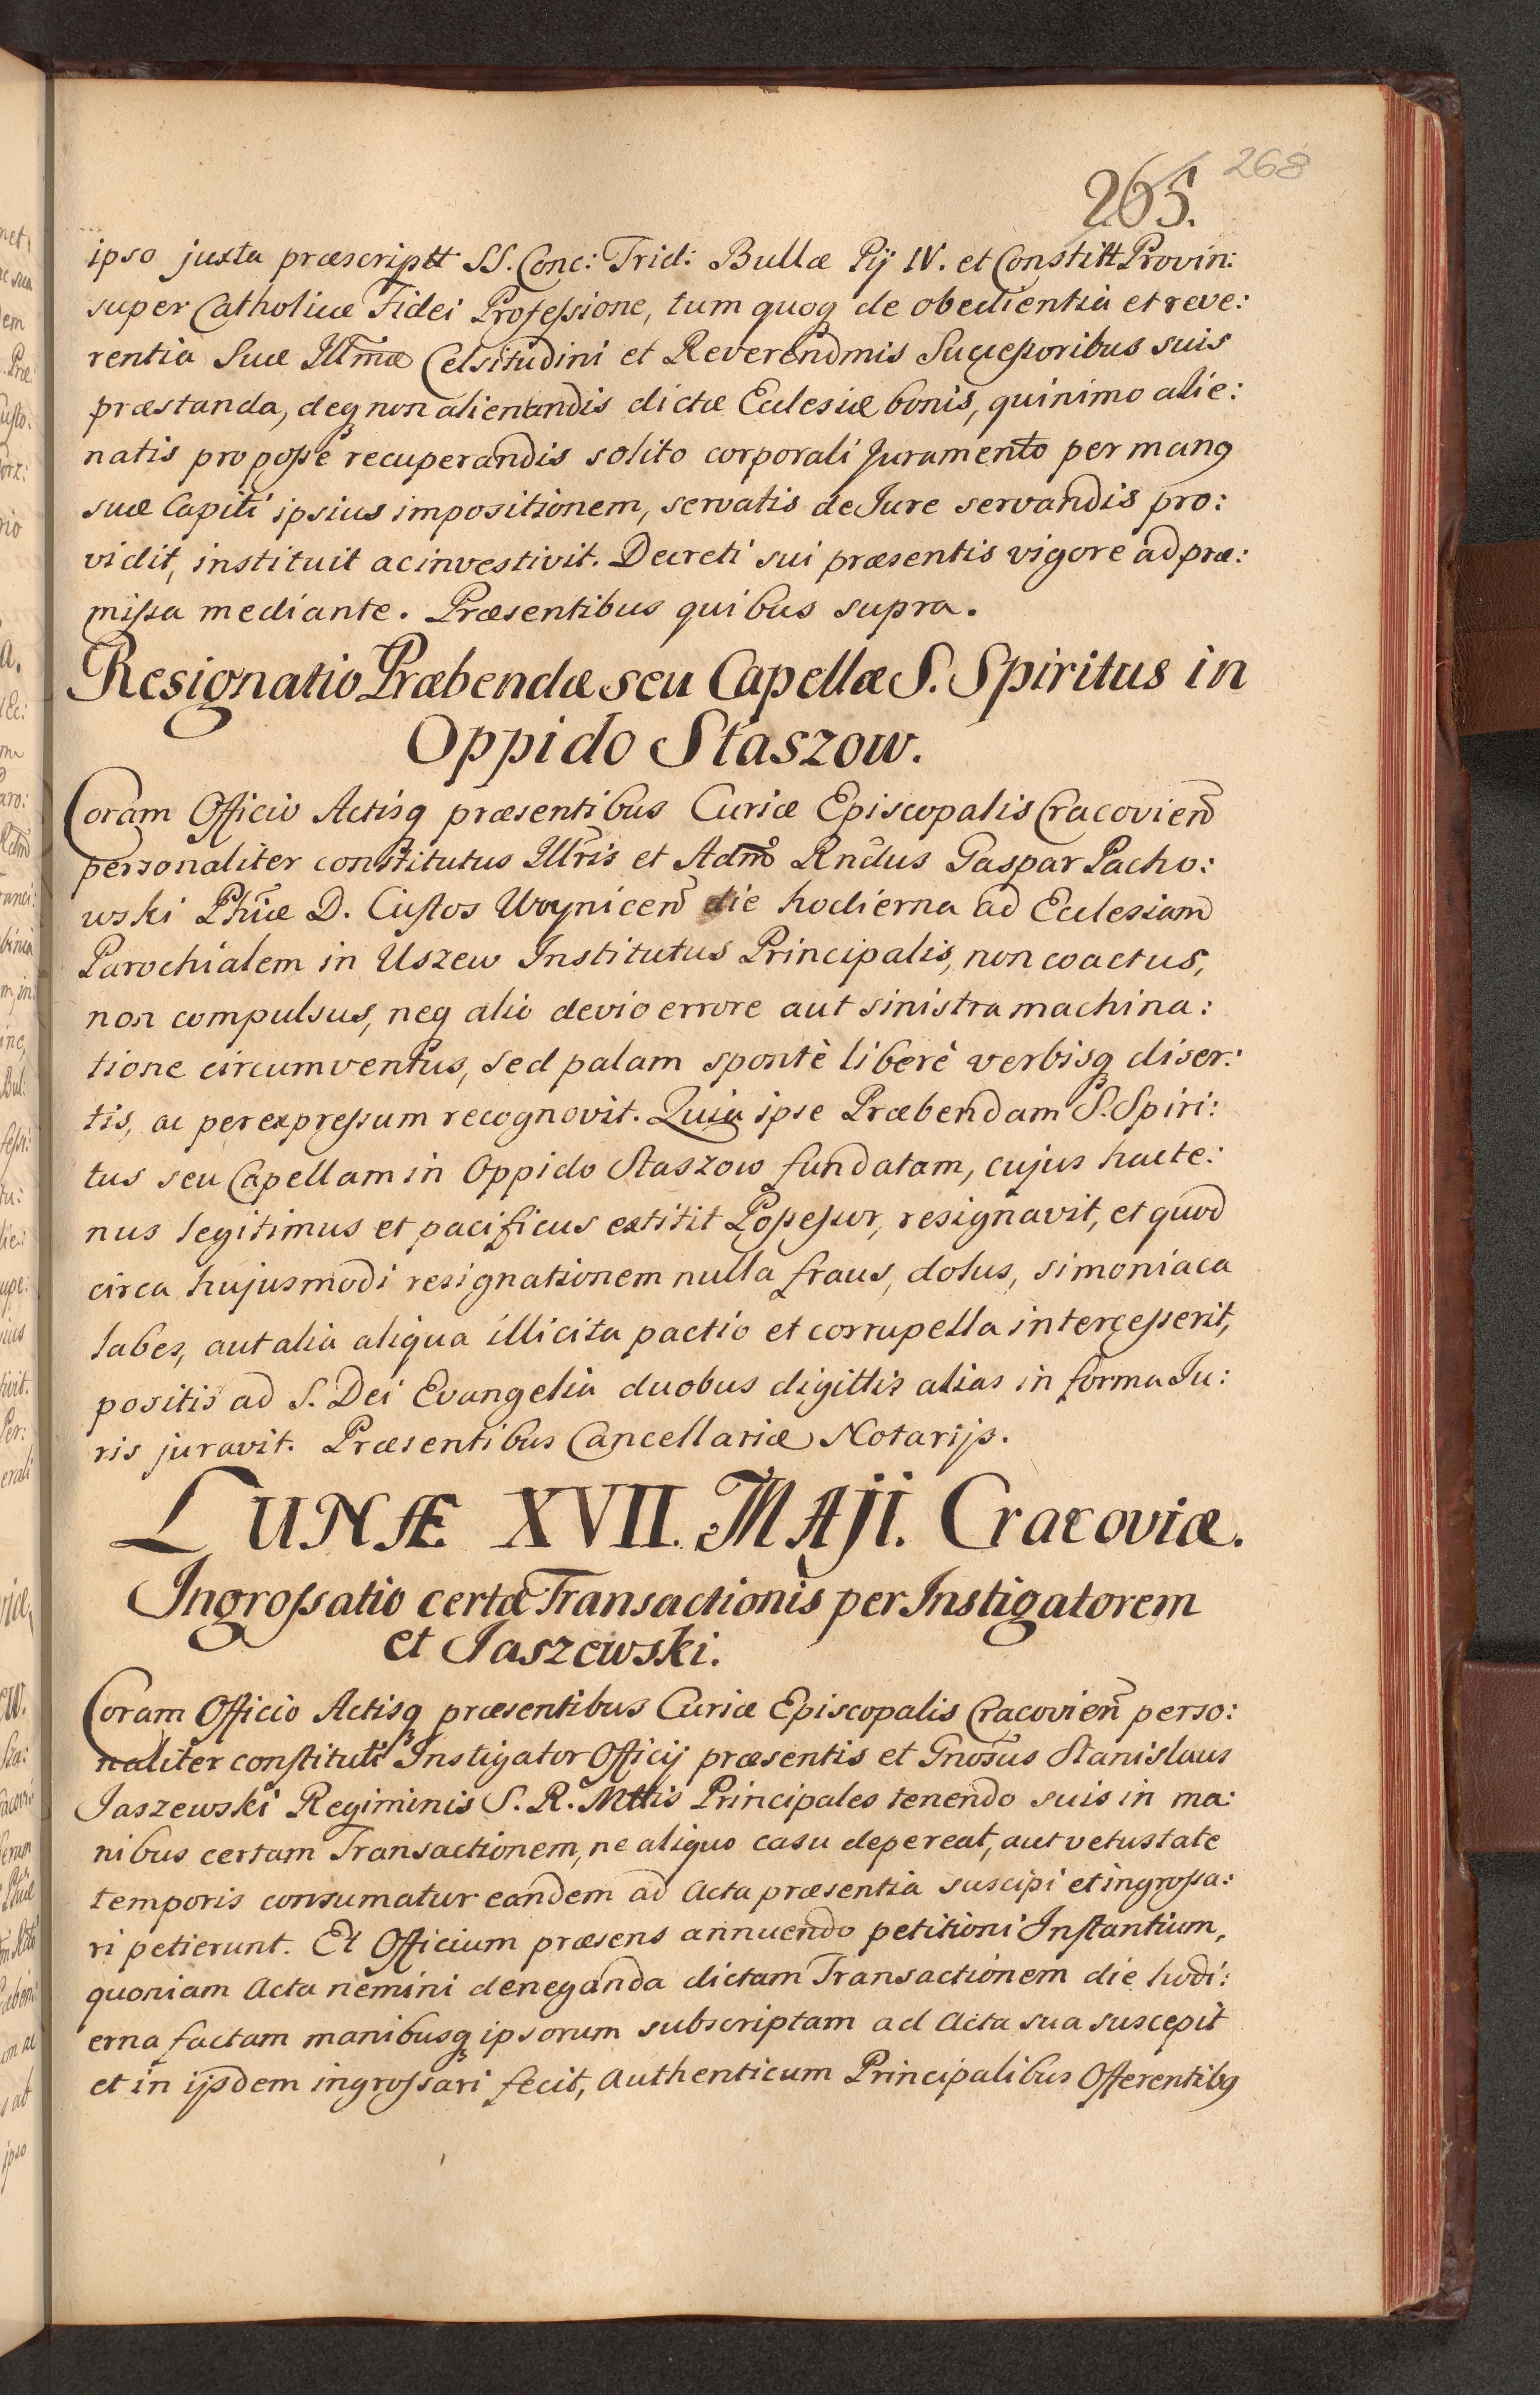 265. 268
ipso juxta præscriptt SS. Conc: Trid: Bullæ Pij IV. et Constitt Provin:
super Catholicæ Fidei Professione, tum quoq de obedientia et reve:
rentia Suæ Illmæ Celsitudini et Reverendmis Successoribus suis
præstanda, deq non alienandis dictæ Ecclesiæ bonis, quinimo alie:
natis pro posse recuperandis solito corporali Juramento per manq
suæ Capiti ipsius impositionem, servatis de Jure servandis pro:
vidit, instituit ac investivit. Decreti sui præsentis vigore ad præ:
missa mediante. Præsentibus quibus supra.
Resignatio Præbendæ seu Capellæ S. Spiritus in
Oppido Staszow.
Coram Officio Actisq præsentibus Curiæ Episcopalis Cracovien̄
personaliter constitutus Illr̄is et Admo Rndus Gaspar Pacho:
wski Phiæ D. Custos Woynicen̄ die hodierna ad Ecclesiam
Parochialem in Uszew Institutus Principalis, non coactus,
non compulsus, neq alio devio errore aut sinistra machina:
tione circumventus, sed palam spontè liberè verbisq diser:
tis, ac per expressum recognovit. Quia ipse Præbendam S. Spiri:
tus seu Capellam in Oppido Staszow fundatam, cujus hacte:
nus legitimus et pacificus extitit Possessor, resignavit, et quod
circa hujusmodi resignationem nulla fraus, dolus, simoniaca
labes, aut alia aliqua illicita pactio et corruptella intercesserit,
positis ad S. Dei Evangelia duobus digittis alias in forma Ju:
ris juravit. Præsentibus Cancellariæ Notarijs.
LUNÆ XVII. MAJI. Cracoviæ.
Ingrossatio certæ Transactionis per Instigatorem
et Jaszewski.
Coram Officio Actisq præsentibus Curiæ Episcopalis Cracovien̄ perso:
naliter constituti Instigator Officij præsentis et Gnosus Stanislaus
Jaszewski Regiminis S. R. Mttis Principales tenendo suis in ma:
nibus certam Transactionem, ne aliquo casu depereat, aut vetustate
temporis consumatur eandem ad Acta præsentia suscipi et ingrossa:
ri petierunt. Et Officium præsens annuendo petitioni Instantium,
quoniam Acta nemini deneganda dictam Transactionem die hodi:
erna factam manibusq ipsorum subscriptam ad Acta sua suscepit
et in ijsdem ingrossari fecit, Authenticum Principalibus Offerentibq